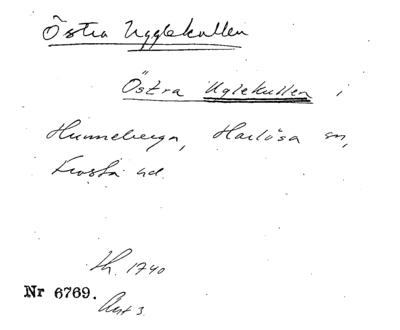 Östra Ugglekullen
Östra Uglekullen i
Hunneberga, Harlösa sn,
Frosta hd.
Lh. 1740
Nr 6769.
Akt 3.